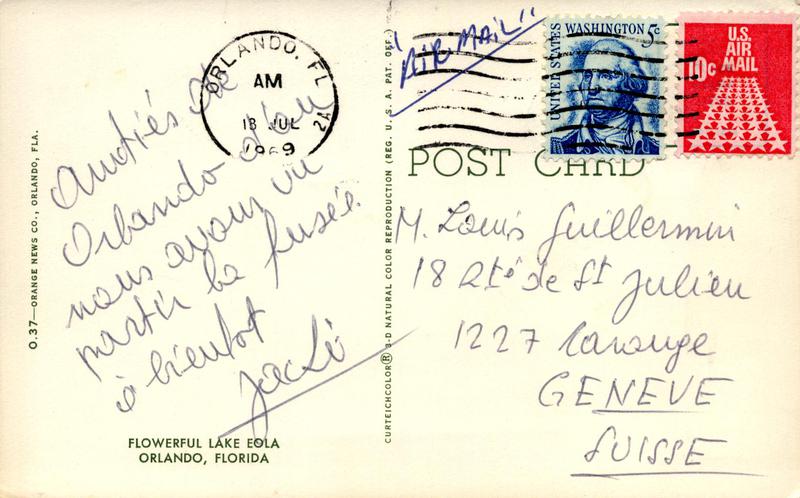 O.37—ORANGE NEWS CO., ORLANDO, FLA.
ORLANDO, FL
AM
18 JUL
1969
2A
Amitiés de
Orlando d'où
nous avons vu
partir la fusée.
à bientot
FLOWERFUL LAKE EOLA
ORLANDO, FLORIDA
CURTEICHCOLOR® 3-D NATURAL COLOR REPRODUCTION (REG. U. S. A. PAT. OFF.)
"AIR-MAIL"
UNITED STATES
WASHINGTON 5c
U.S.
AIR
MAIL
10c
POST CARD
M. Louis Guillermin
18 Rte de St Julien
1227 Carouge
GENEVE
SUISSE